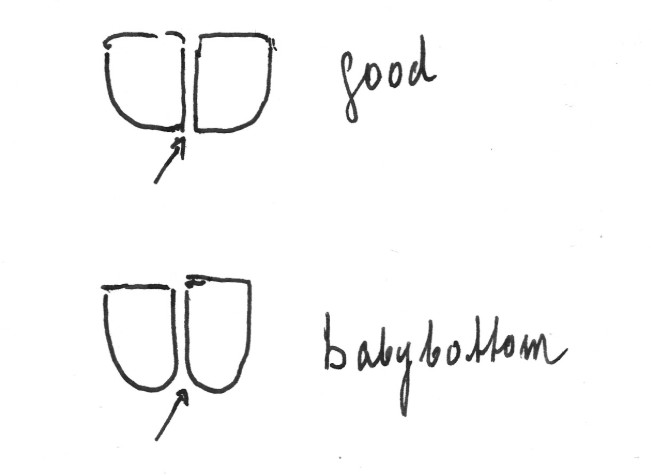 good
babybottom